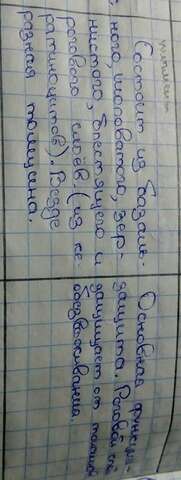 Состоит из базаль-
ного, шиповатого, зер-
нистого, блестящего и
рогового слоев. (из ке-
ратиноцитов). Везде
разная толщина.
Основная функция-
защита. Роговой слой
защищает от
обезвоживания.